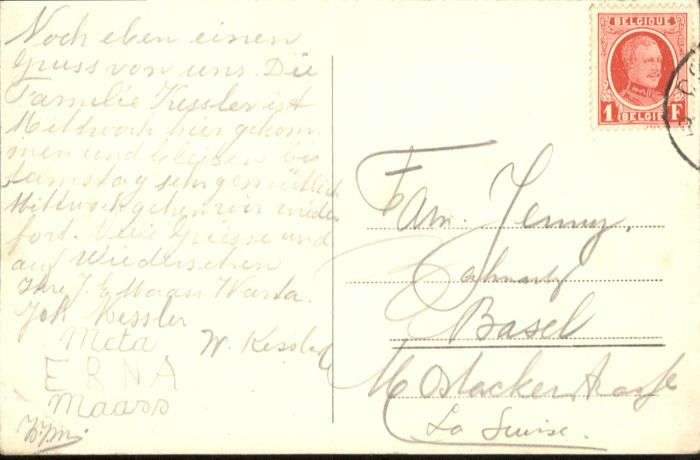 Noch eben einen
Gruss von uns. Die
Familie Kessler ist
Mittwoch hier gekom
men und bleiben bis
Samstag sehr gemütlich
Mittwoch gehen wir wieder
fort. Viele Grüsse und
auf Wiedersehen
Ihre J. E. Maass Warta.
Joh. Kessler
Meta W. Kessler
ERNA
Maass
BELGIQUE
1 F
BELGIË
Fam. Jenny,
Basel
Mostackerstrasse
La Suisse.